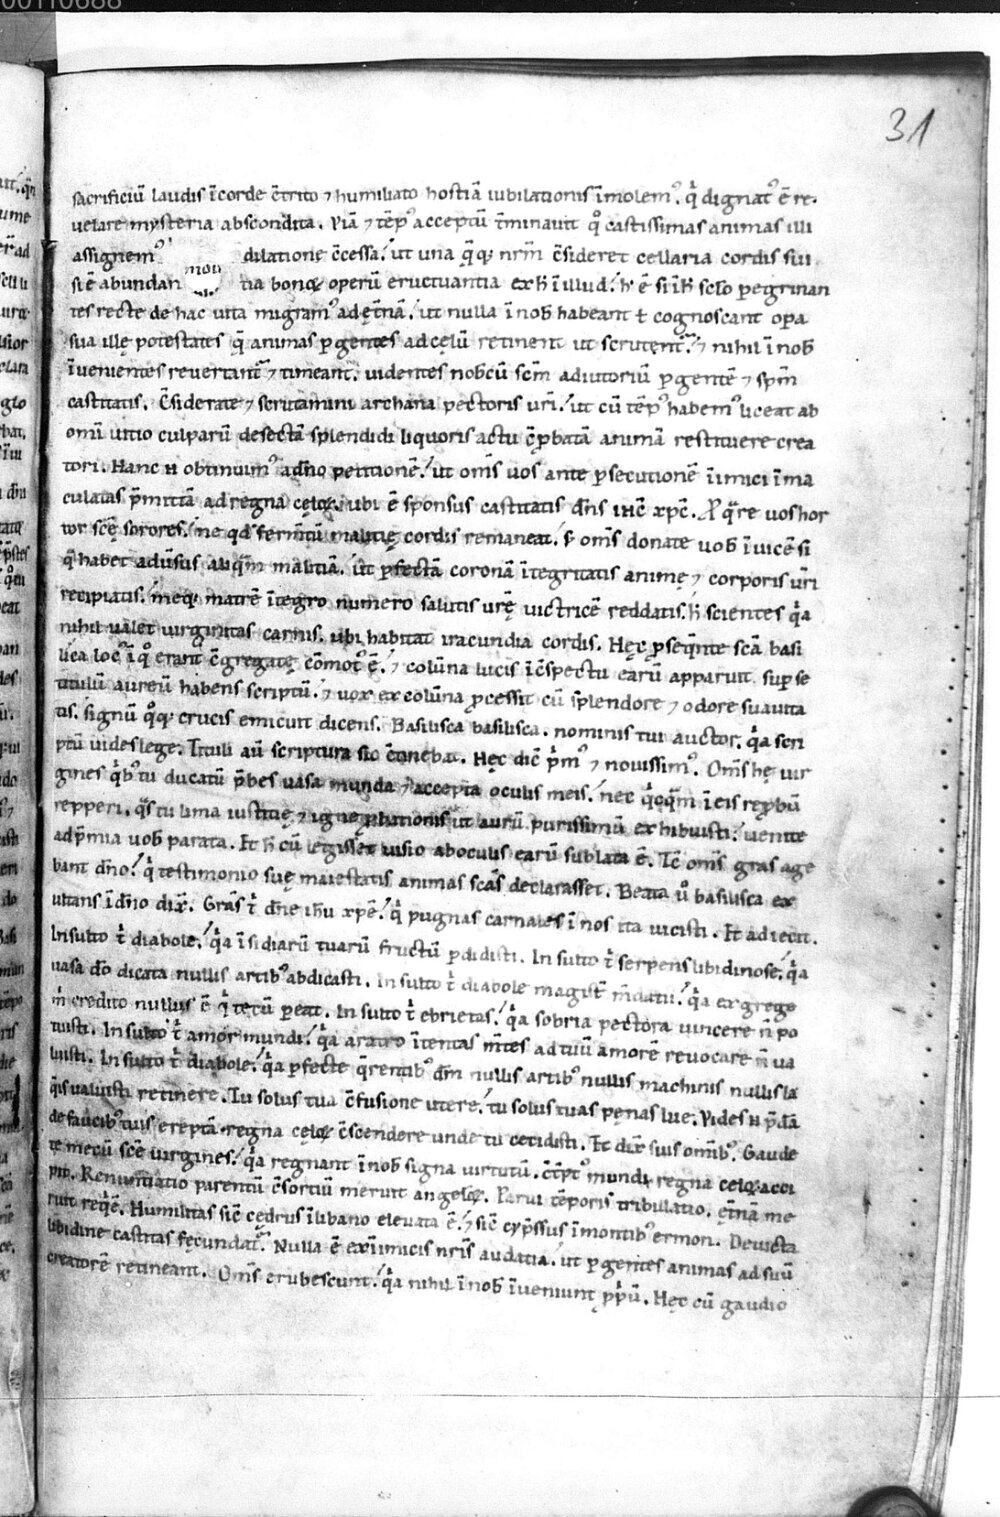 00110688
31
sacrificiū laudis īcorde c̄trito ⁊ humiliato hostiā iubilationis īmolemꝰ. qͥ dignatꝰ ē re
uelare mysteria abscondita. Piā ⁊ tēpꝰ acceptū t̄minauit qͦ castissimas animas illi
assignemꝰ dilatione c̄cessa. ut una q̄q; nr̄m c̄sideret cellaria cordis sui
si ē abundantia bonoꝝ operū eructuantia ex h̄ īllud. h̄ ē si īh̄ sclo peregrinan
tes recte de hac uita migramꝰ ad ęt̄nā. ut nulla ī nob̄ habeant ł cognoscant opa
sua illę potestates q̄ animas ꝑgentes ad cęlū retinent ut scrutent᷑. ⁊ nihil ī nob̄
īuenientes reuertant᷑ ⁊ timeant. uidentes nob̄cū sc̄m adiutoriū ꝑgentē ⁊ sp̄m
castitatis. C̄siderate ⁊ scrutamini archana pectoris ur̄i. ut cū tēpꝰ habemꝰ liceat ab
omī uitio culparū desectā splendidi liquoris actu c̄ꝓbatā animā restituere crea
tori. Hanc n̄ obtinuimꝰ ad n̄o petitionē. ut om̄s uos ante ꝑsecutionē īimici īma
culatas p̄mittā ad regna celoꝝ. ubi ē sponsus castitatis dn̄s ihc̄ xpc̄. P̱ q̄re uos hor
tor sc̄ę sorores. ne qd fermtū malitię cordis remaneat. s; om̄s donate uob̄ īuicē si
q̄ habet aduersus aliq̄m malitiā. ut ꝑfectā coronā ītegritatis animę ⁊ corporis ur̄i
recipiatis. meq; matrē ītegro numero salutis urę̄ uictricē reddatis. h̄ scientes qͥa
nihil ualet uirginitas carnis. ubi habitat iracundia cordis. Hęc ꝓseq̄nte scā basi
lica locꝰ ī qͦ erant c̄gregatę cōmotꝰ ē. ⁊ colūna lucis ī c̄spectu earū apparuit. suꝑ se
titulū aureū habens scriptū. ⁊ uox ex colūna ꝓcessit cū splendore ⁊ odore suauita
tis. signū qͦq; crucis emicuit dicens. Basilisca basilisca. nominis tui auctor. qͥa scri
ptū uides lege. Tituli aū scriptura sic c̄tinebat. Hęc dic̄ p̄mꝰ ⁊ nouissimꝰ. Om̄s hę uir
gines qͥbꝰ tu ducatū p̄bes uasa munda ⁊ accepta oculis meis. nec qͥcq̄m ī eis rep̱bū
repperi. qͣs tu lima iustitię ⁊ igne ut aurū purissimū exhibuisti. uenite
ad p̄mia uob̄ parata. Et h̄ cū legisset uisio ab oculis earū sublata ē. Tc̄ om̄s gras age
bant dn̄o. qͥ testimonio suę maiestatis animas scās declarasset. Beata u̾ basilisca ex
ultans ī dn̄o dix̄. Gras t̄ dn̄e ihū xpē. qͥ pugnas carnales ī nos ita uicisti. Et adiecit.
Insulto t̄ diabole. qͥa īsidiarū tuarū fructū ꝑdidisti. Insulto t̄ serpens libidinose. qͥa
uasa dō dicata nullis artibꝰ abdicasti. Insulto t̄ diabole magist̄ m̄datii. qͥa ex grege
m̄ credito nullus ē qͥ tecū pereat. Insulto t̄ ebrietas. qͥa sobria pectora uincere n̄ po
tuisti. Insulto t̄ amor mundi. qͥa aratro ītentas m̄tes ad tuū amorē reuocare n̄ ua
luisti. Insulto t̄ diabole. qͥa ꝑfecte q̄rentibꝰ dm̄ nullis artibꝰ nullis machinis nullis la
q̄is ualuisti retinere. Tu solus tua c̄fusione utere. tu solus tuas pęnas lue. Vides n̄ p̄dā
de faucibꝰ tuis ereptā regna celoꝝ c̄scendere unde tu cecidisti. Et dix̄ suis om̄ibꝰ. Gaude
te mecū sc̄ę uirgines. qͥa regnant ī nob̄ signa uirtutū. C̄tēptꝰ mundi regna celoꝝ acci
pit. Renuntiatio parentū c̄sortiū meruit angeloꝝ. Parui tēporis tribulatio. ęt̄nā me
ruit req̄ē. Humilitas sic̄ cędrus ī libano eleuata ē. ⁊ sic̄ cyp̄ssus ī montibꝰ ermon. Deuicta
libidine castitas fęcundat᷑. Nulla ē ex īimicis nr̄is audatia. ut ꝑgentes animas ad suū
creatorē retineant. Om̄s erubescunt. qͥa nihil ī nob̄ īueniunt ꝓp̄ū. Hęc cū gaudio